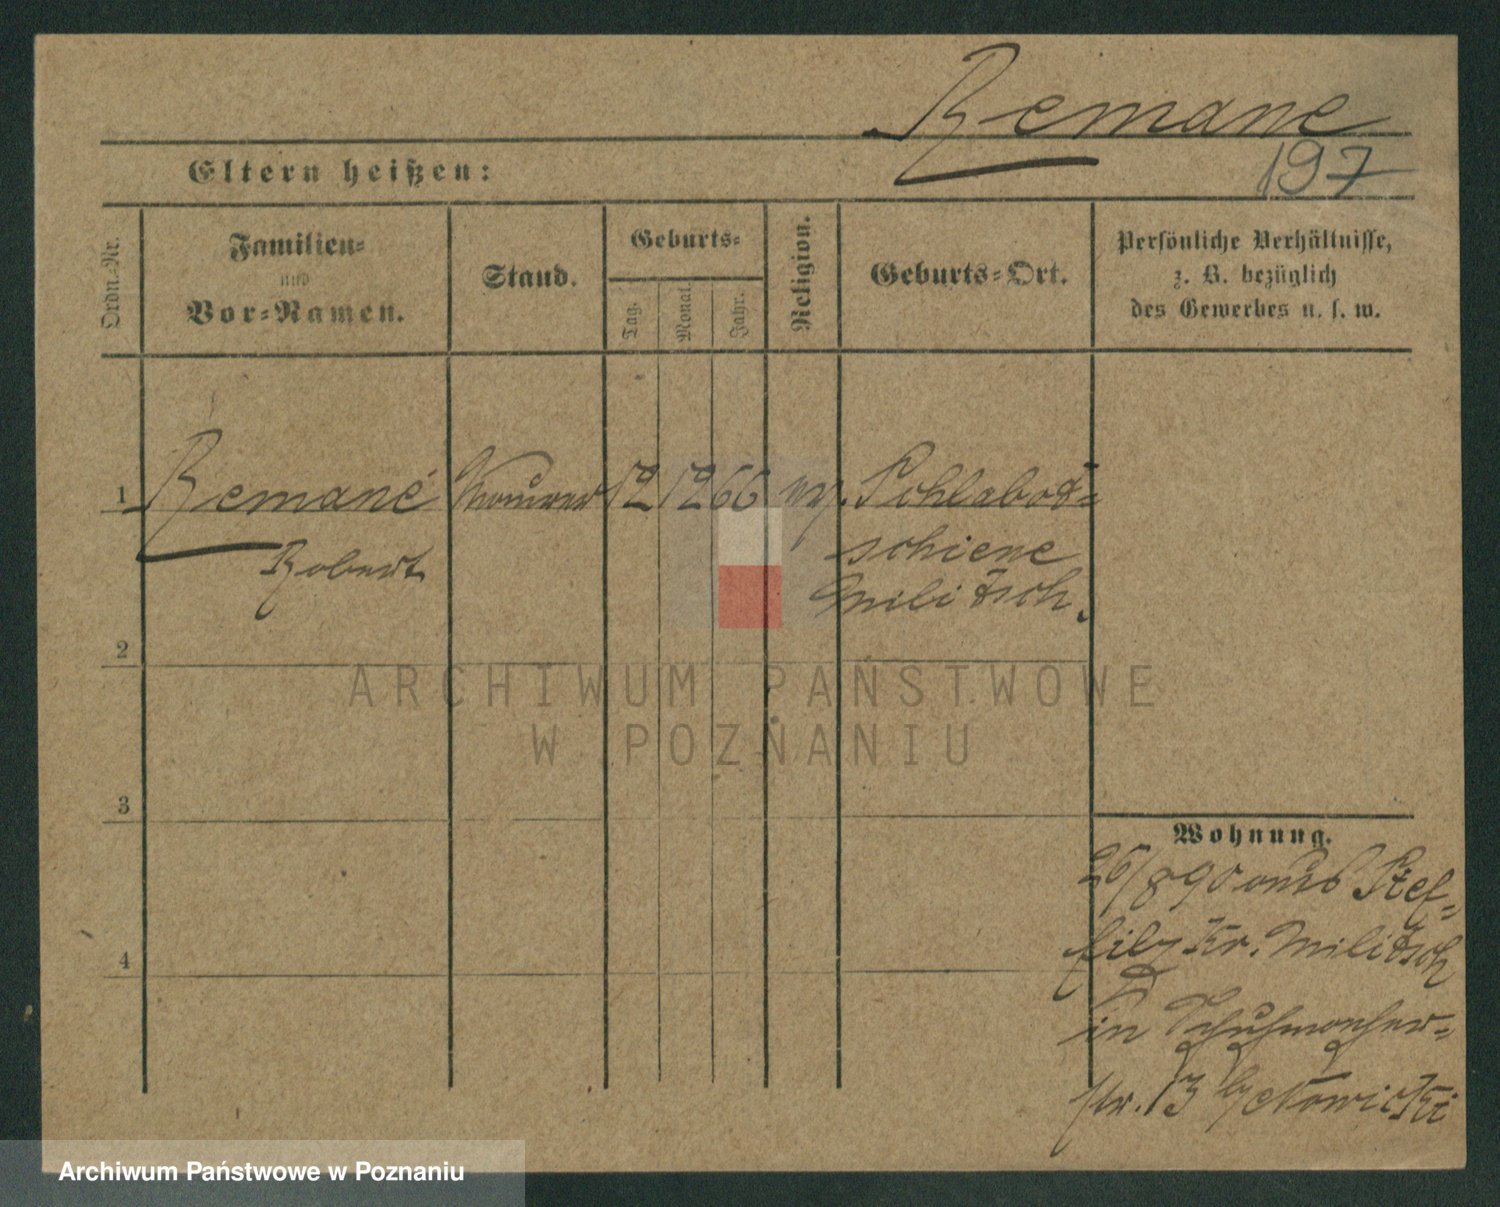 Remane
197
Eltern heißen:
Ordn.-Nr.
Familien-
und
Vor-Namen.
Stand.
Geburts-
Tag.
Monat.
Jahr.
Religion.
Geburts-Ort.
Persönliche Verhältnisse,
z. B. bezüglich
des Gewerbes u. s. w.
1 Remané Maurer 12 12 66 ev. Schlabot-
schiene
Militsch.
Robert
2
ARCHIWUM PAŃSTWOWE
W POZNANIU
3
Wohnung.
26/8 90 aus
Kr. Militsch
4
in Schuhmacher-
str. 13 b/
Archiwum Państwowe w Poznaniu